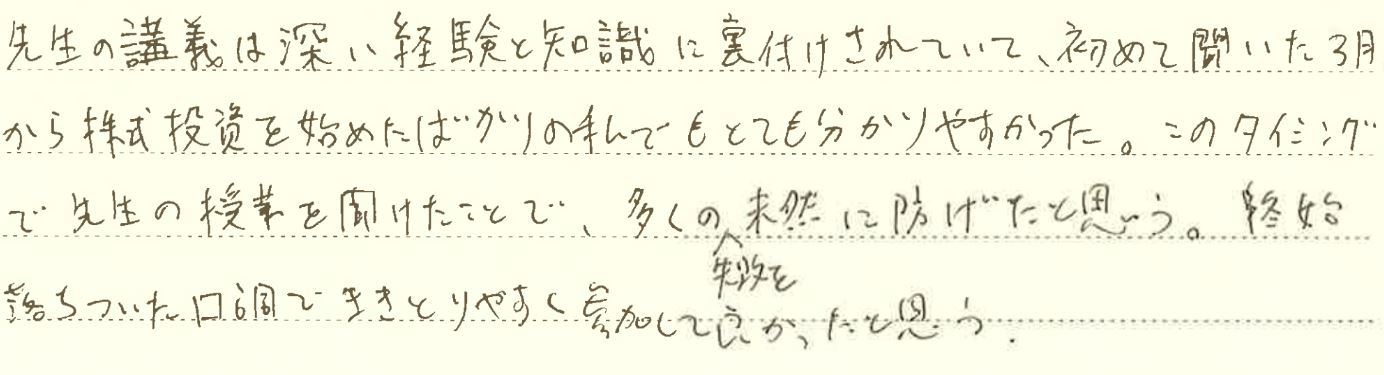 先生の講義は深い経験と知識に裏付けされていて、初めて聞いた3月
から株式投資を始めたばかりの私でもとても分かりやすかった。このタイミング
で先生の授業を聞けたことで、多くの失敗を未然に防げたと思う。終始
落ちついた口調でききとりやすく参加して良かったと思う.